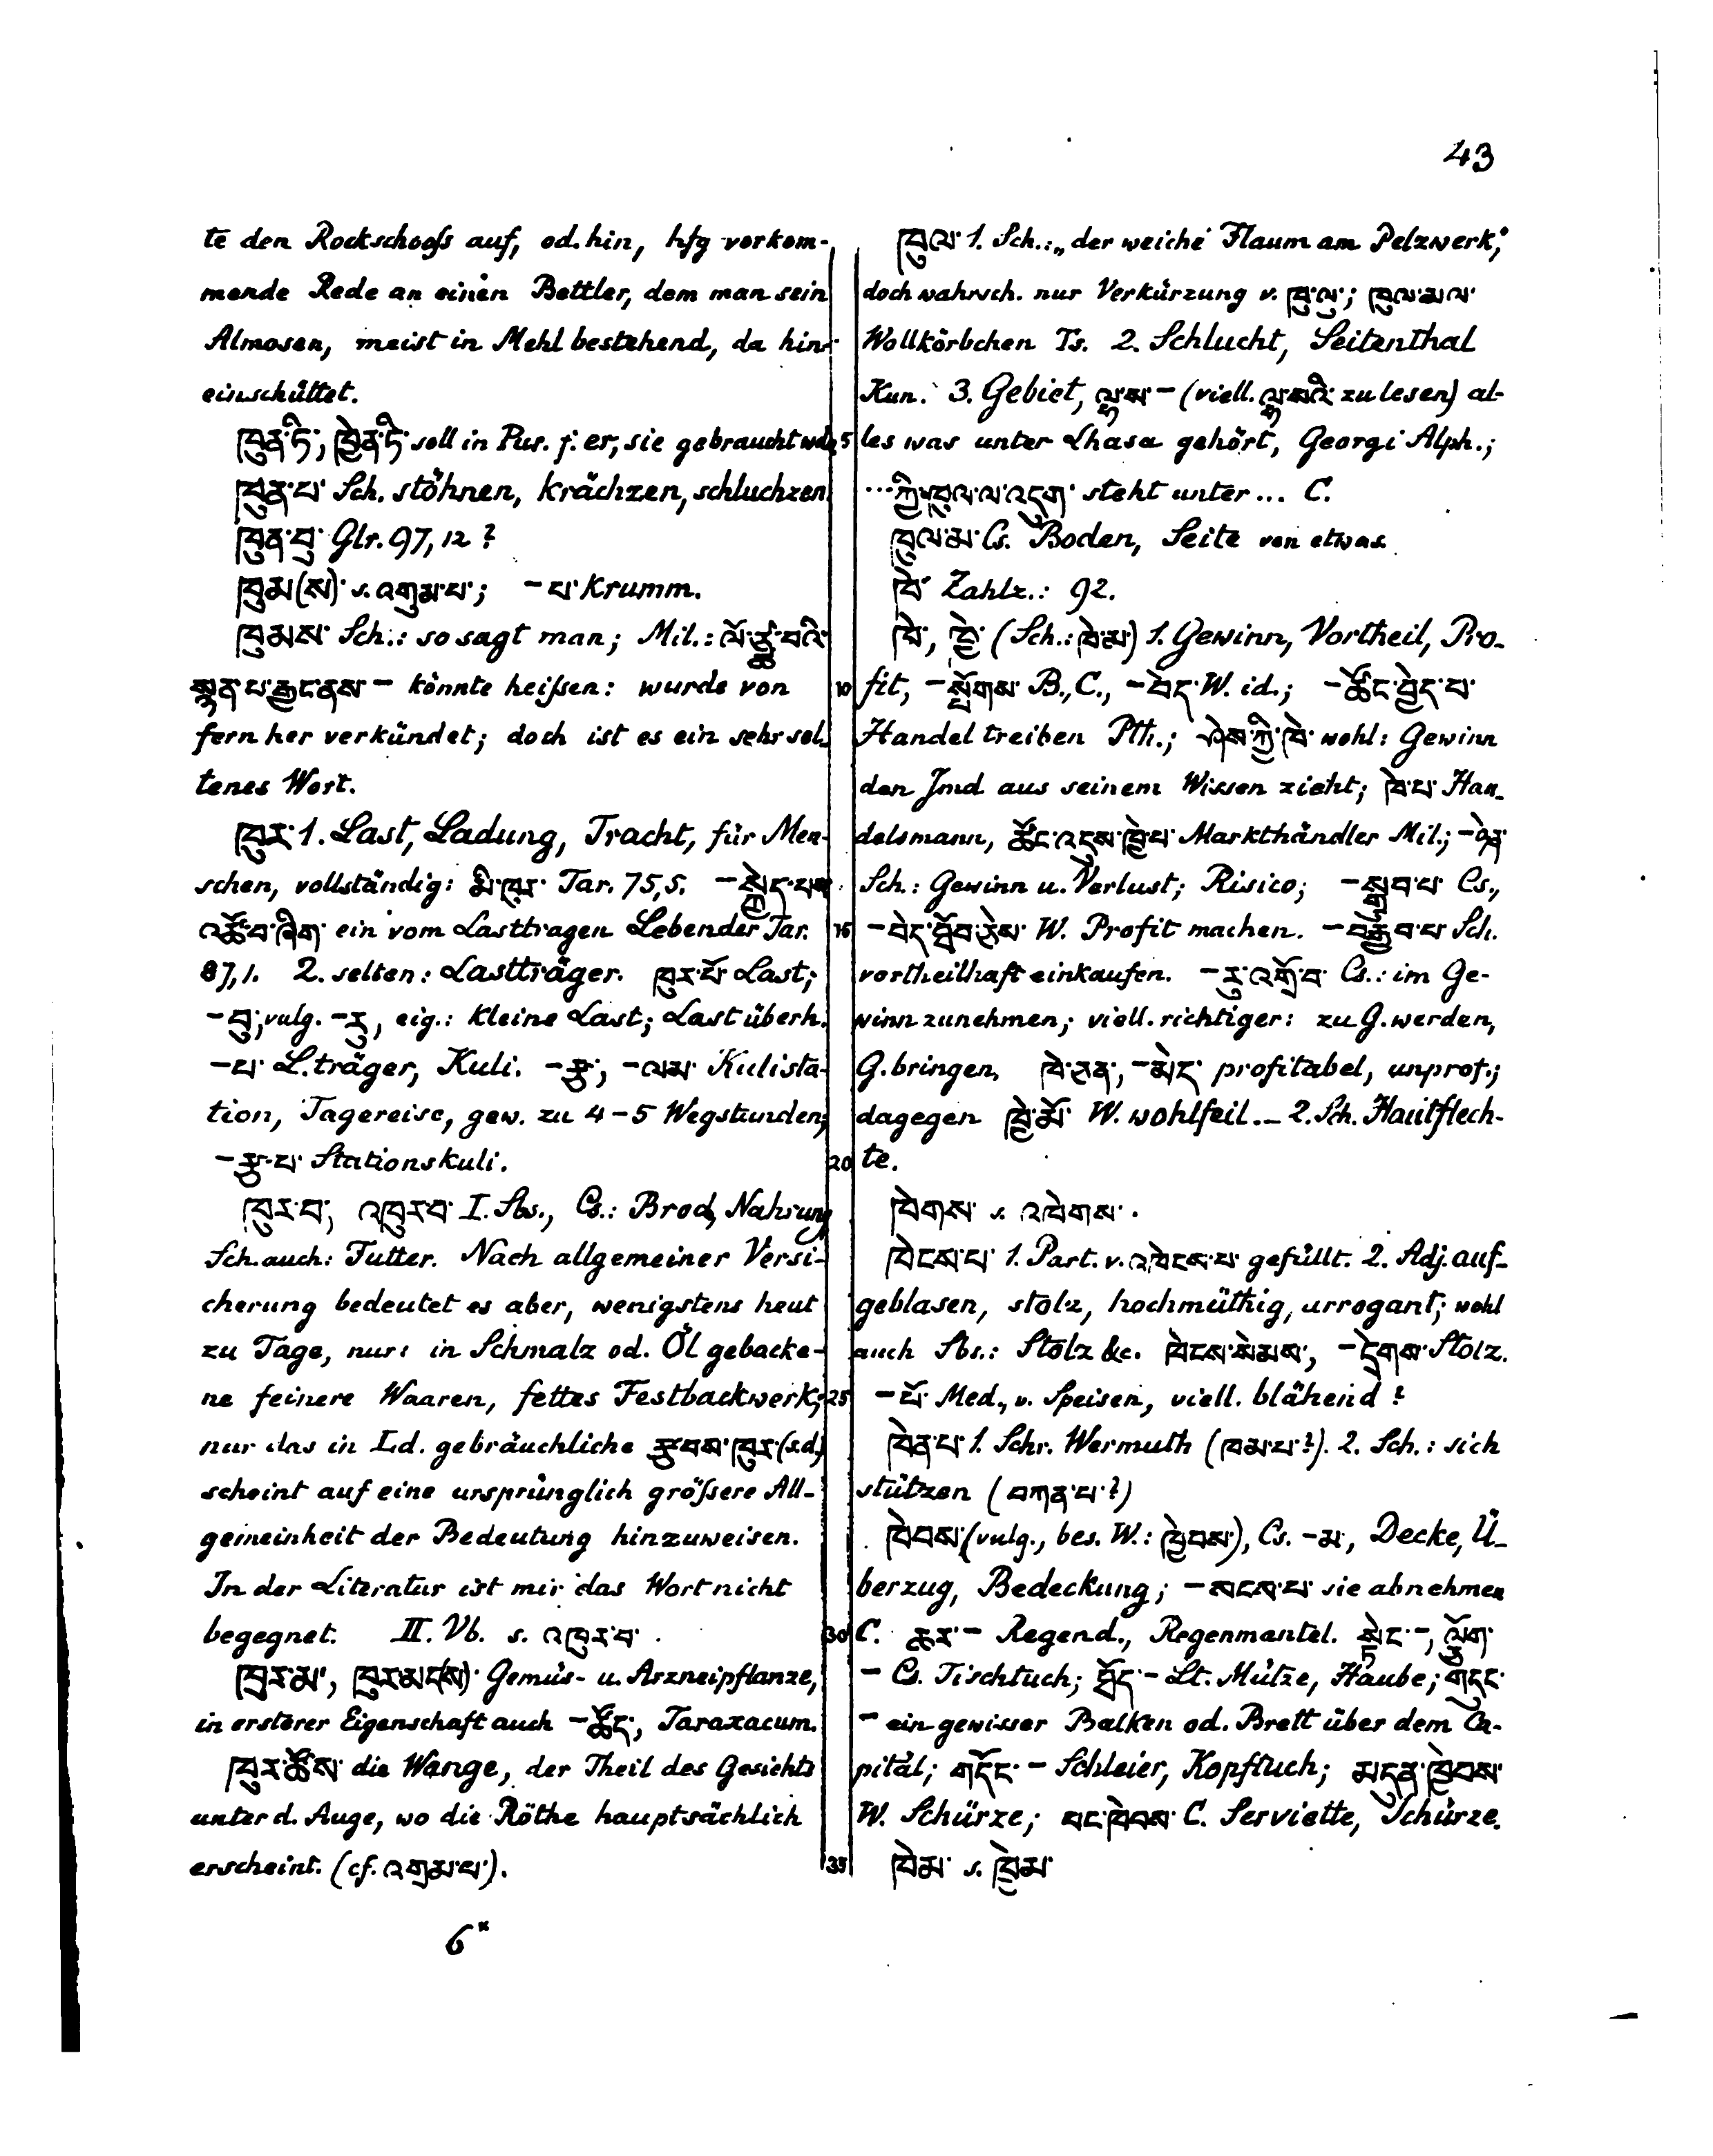 43
te den Rockschooſs auf, od. hin, hfg vorkom-
mende Rede an einen Bettler, dem man sein
Almosen, meist in Mehl bestehend, da hin-
einschüttet.
ཁུན་ཏི་, ཁྱེན་ཏི་ soll in Pur. f. er, sie gebraucht wdn.
ཁུན་པ་ Sch. stöhnen, krächzen, schluchzen
ཁུན་བུ་ Glr. 97,12?
ཁུམ(ས)་ s. འགུམ་པ་; -པ་ krumm.
ཁུམས་ Sch.: so sagt man; Mil.:
སྙན་པ་རྒྱང་ནས་ - könnte heiſsen: wurde von
fern her verkündet; doch ist es ein sehr sel-
tenes Wort.
ཁུར་ 1. Last, Ladung, Tracht, für Men-
schen, vollständig: མི་ཁུར་ Tar. 75,5.
འཚོ་བ་ཞིག་ ein vom Lasttragen Lebender Tar.
87,1. 2. selten: Lastträger. ཁུར་པོ་ Last;
-བུ་, vulg. -རུ་, eig.: kleine Last; Last überh.
-པ་ L.träger, Kuli. -རྩ་, -ལམ་ Kulista-
tion, Tagereise, gew. zu 4-5 Wegstunden;
-རྩ་པ་ Stationskuli.
ཁུར་བ་, འཁུར་བ་ I. Sbs., Cs.: Brod, Nahrung
Sch. auch: Futter. Nach allgemeiner Versi-
cherung bedeutet es aber, wenigstens heut
zu Tage, nur: in Schmalz od. Öl gebacke-
ne feinere Waaren, fettes Festbackwerk;
nur das in Ld. gebräuchliche རྩབས་ཁུར་ (s.d.)
scheint auf eine ursprünglich gröſsere All-
gemeinheit der Bedeutung hinzuweisen.
In der Literatur ist mir das Wort nicht
begegnet. II. Vb. s. འཁུར་བ་.
ཁུར་མ་, ཁུར་མང(ས)་ Gemüs- u. Arzneipflanze,
in ersterer Eigenschaft auch -ཚོད་, Taraxacum.
ཁུར་ཚོས་ die Wange, der Theil des Gesichts
unter d. Auge, wo die Röthe hauptsächlich
erscheint. (cf. འགྲམ་པ་).
6*
ཁུལ་ 1. Sch.: „der weiche Flaum am Pelzwerk,"
doch wahrsch. nur Verkürzung v. ཁུ་ལུ་; ཁུལ་མལ་
Wollkörbchen Ts. 2. Schlucht, Seitenthal
Kun. 3. Gebiet, ལྷ་ས་ - (viell. ལྷ་སའི་ zu lesen) al-
5 les was unter Lhasa gehört, Georgi Alph.;
...ཀྱི་ཁུལ་ལ་འདུག་ steht unter... C.
ཁུལ་མ་ Cs. Boden, Seite von etwas.
ཁེ་ Zahlz.: 92.
ཁེ་, ཁྱེ་ (Sch.: ཁེ་མ་) 1. Gewinn, Vortheil, Pro-
10 fit, -སྤོགས་ B., C., -བེད་ W. id.; -ཚོང་བྱེད་པ་
Handel treiben Pth.; ཤེས་ཀྱི་ཁེ་ wohl: Gewinn
den Jmd aus seinem Wissen zieht; ཁེ་པ་ Han-
delsmann, ཚོང་འདུས་ཁྱེ་པ་ Markthändler Mil.; -ཉེན་
Sch.: Gewinn u. Verlust; Risico; -སྒྲུབ་པ་ Cs.,
15 -བེད་ཐོབ་ཅེས་ W. Profit machen. -བརྒྱབ་པ་ Sch.
vortheilhaft einkaufen. -རུ་འགྲོ་བ་ Cs.: im Ge-
winn zunehmen; viell. richtiger: zu G. werden,
G. bringen. ཁེ་ཅན་, -མེད་ profitabel, unprof.;
dagegen ཁྱེ་མོ་ W. wohlfeil. _ 2. Sch. Hautflech-
20 te.
ཁེགས་ s. འཁེགས་.
ཁེངས་པ་ 1. Part. v. འཁེངས་པ་ gefüllt. 2. Adj. auf-
geblasen, stolz, hochmüthig, arrogant; wohl
auch Sbs.: Stolz &c. ཁེངས་སེམས་, -དྲེགས་ Stolz.
25 -པོ་ Med., v. Speisen, viell. blähend?
ཁེན་པ་ 1. Schr. Wermuth (ཁམ་པ་?). 2. Sch.: sich
stützen (བཀན་པ་?)
ཁེབས་ (vulg., bes. W.: ཁྱེབས་), Cs. -མ་, Decke, Ü-
berzug, Bedeckung; -སངས་པ་ sie abnehmen
30 C. ཆར་ - Regend., Regenmantel. སྟེང་-, ལྕོག་
- Cs. Tischtuch; ཐོད་ - Lt. Mütze, Haube; གདང་
- ein gewisser Balken od. Brett über dem Ca-
pitäl; གདོང་ - Schleier, Kopftuch; མདུན་ཁྱེབས་
W. Schürze; པང་ཁེབས་ C. Serviette, Schürze.
35 ཁེམ་ s. ཁྱེམ་